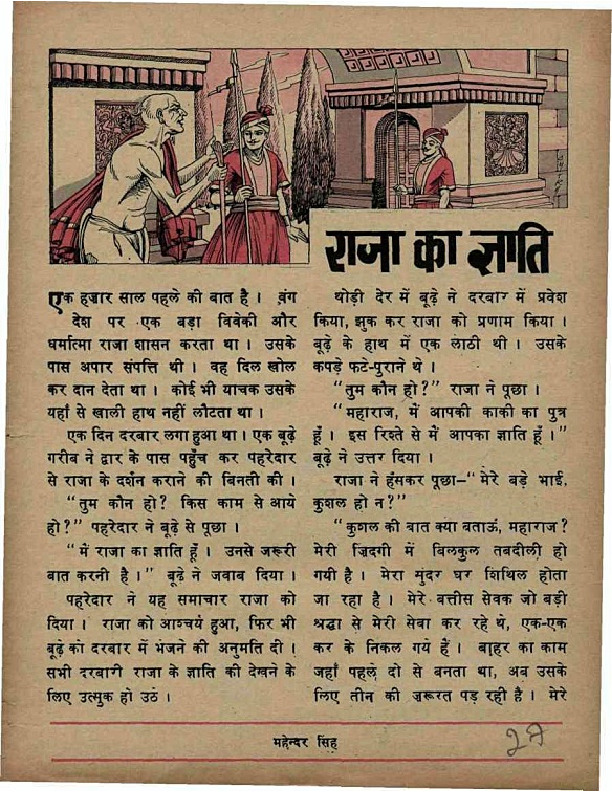 राजा का ज्ञाति
एक हजार साल पहले की बात है। वंग
देश पर एक बड़ा विवेकी और
धर्मात्मा राजा शासन करता था। उसके
पास अपार संपत्ति थी। वह दिल खोल
कर दान देता था। कोई भी याचक उसके
यहाँ से खाली हाथ नहीं लौटता था।
एक दिन दरबार लगा हुआ था। एक बूढ़े
गरीब ने द्वार के पास पहुँच कर पहरेदार
से राजा के दर्शन कराने की बिनती की।
"तुम कौन हो? किस काम से आये
हो?" पहरेदार ने बूढ़े से पूछा।
"में राजा का ज्ञाति हूँ। उनसे जरूरी
बात करनी है।" बूढ़े ने जवाब दिया।
पहरेदार ने यह समाचार राजा को
दिया। राजा को आश्चर्य हुआ, फिर भी
बूढ़े को दरबार में भेजने की अनुमति दी।
सभी दरबारी राजा के ज्ञाति की देखने के
लिए उत्सुक हो उठे।
थोड़ी देर में बूढ़े ने दरबार में प्रवेश
किया, झुक कर राजा को प्रणाम किया।
बूढ़े के हाथ में एक लाठी थी। उसके
कपड़े फटे-पुराने थे।
"तुम कौन हो?" राजा ने पूछा।
"महाराज, में आपकी काकी का पुत्र
हूँ। इस रिश्ते से में आपका ज्ञाति हूँ।"
बूढ़े ने उत्तर दिया।
राजा ने हंसकर पूछा-"मेरे बड़े भाई,
कुशल हो न?"
"कुशल की बात क्या बताऊं, महाराज?
मेरी ज़िदगी में बिलकुल तबदीली हो
गयी है। मेरा सुंदर घर शिथिल होता
जा रहा है। मेरे बत्तीस सेवक जो बड़ी
श्रद्धा से मेरी सेवा कर रहे थे, एक-एक
कर के निकल गये हैं। बाहर का काम
जहाँ पहले दो से बनता था, अब उसके
लिए तीन की ज़रूरत पड़ रही है। मेरे
महेन्दर सिंह
27